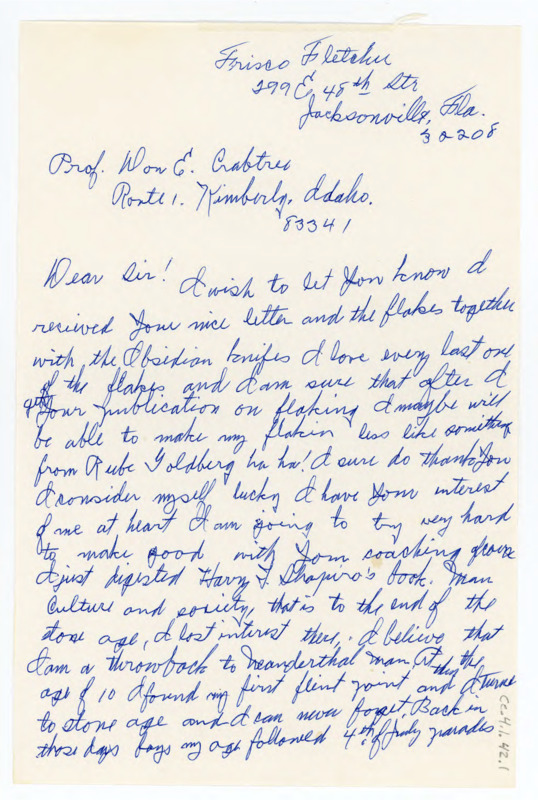 Frisco Fletcher
299 E. 48th Str
Jacksonville, Fla.
32208
Prof. Don E. Crabtree
Route 1. Kimberly, Idaho.
83341
Dear Sir! I wish to let you know I
recieved your nice letter and the flakes together
with, the Obsidian knifes I love every last one
of the flakes and I am sure that after I
get your publication on flaking I maybe will
be able to make my flakin less like something
from Rube Goldberg ha ha! I sure do thank you
I consider myself lucky I have your interest
of me at heart I am going to try very hard
to make good with your coaching of course
I just digested Harry L. Shapiro's book. Man
Culture and society, that is to the end of the
stone age, I lost interest there, I believe that
I am a throwback to Neanderthal man, At the
age of 10 I found my first flint point and I turned
to stone age and I can never forget, Back in
those days boys my age followed 4th of July parades
Cc.H.1.42.1